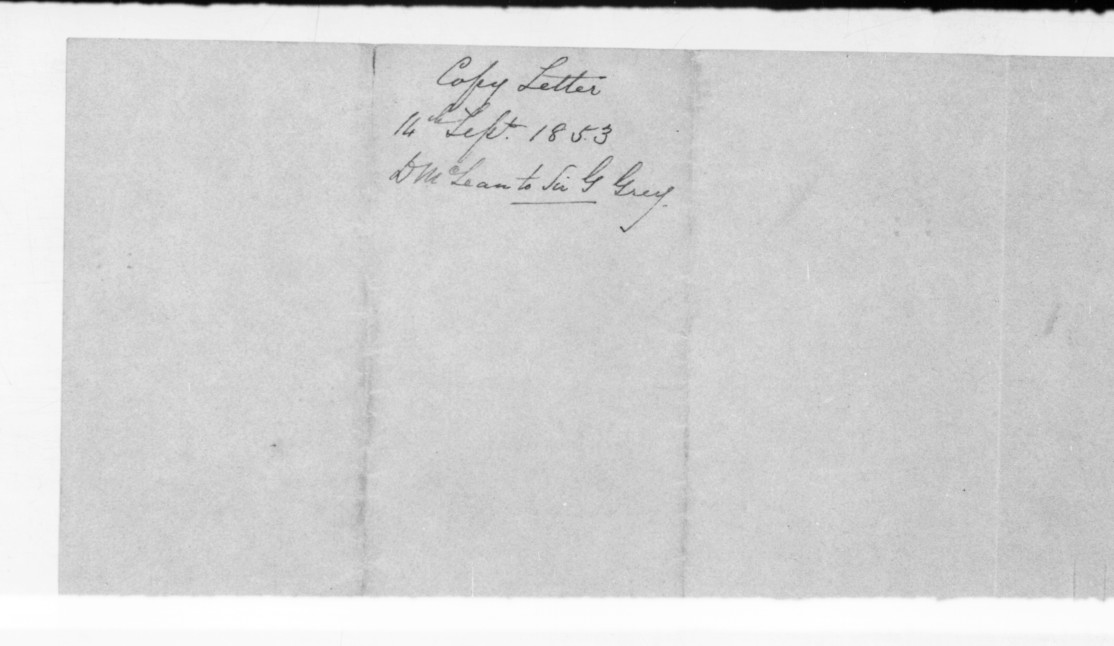 Copy Letter
14th Sept. 1853
D McLean to Sir G Grey.